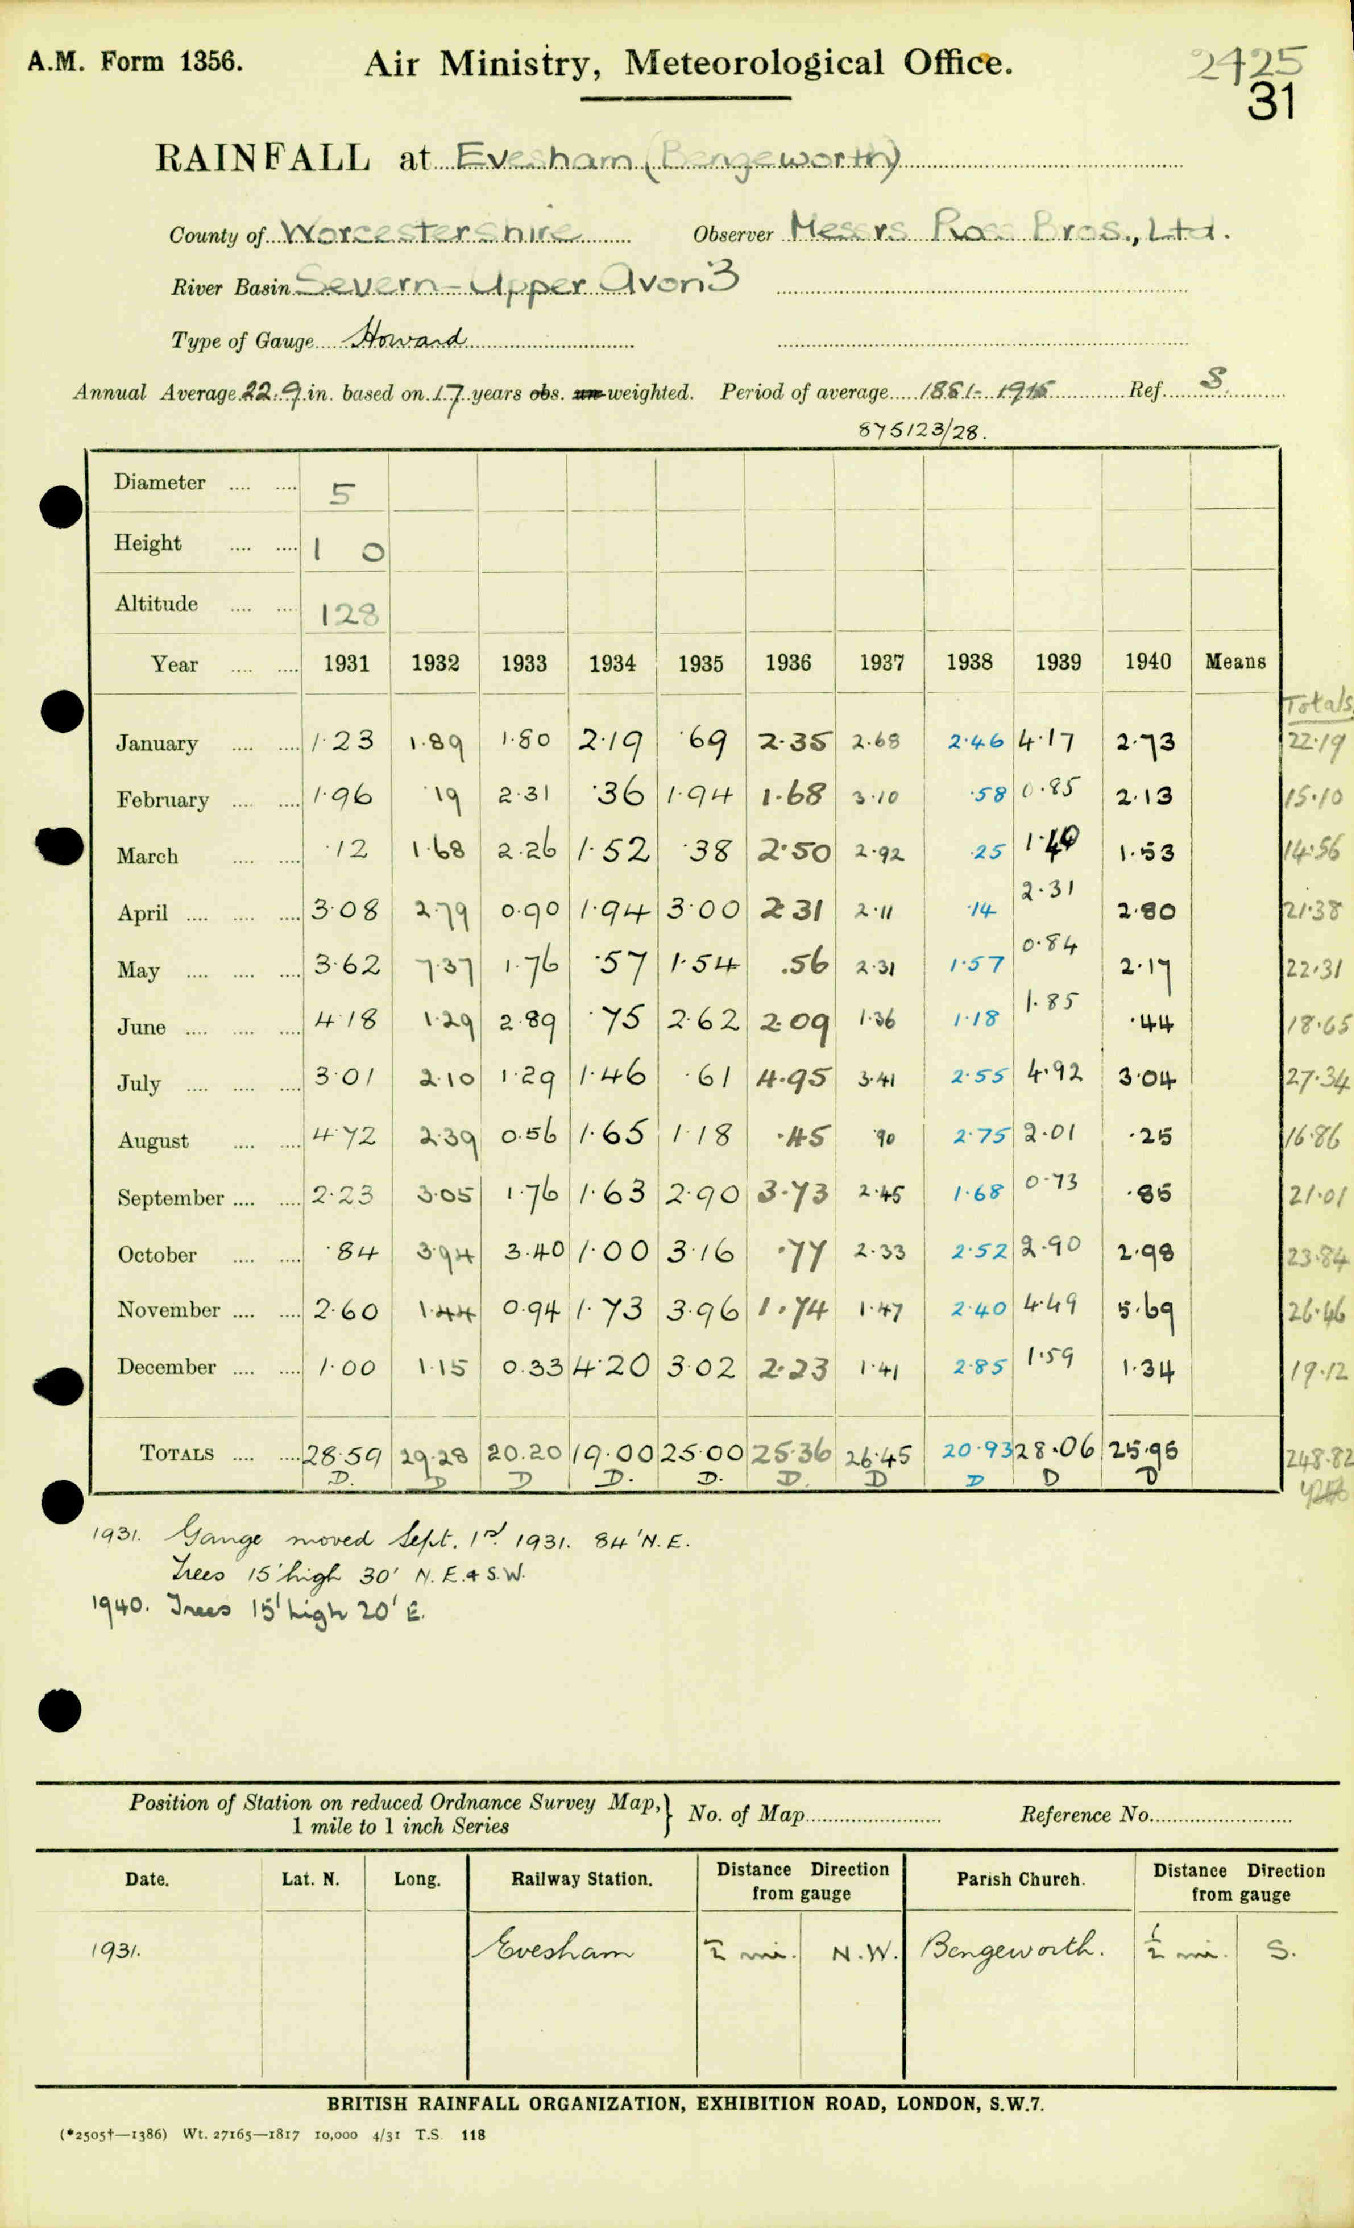 A.M. Form 1356. Air Ministry, Meteorological Office. 2425
31
RAINFALL at Evesham (Bengeworth)
County of Worcestershire Observer Messrs Ross Bros., Ltd.
River Basin Severn-Upper Avon 3
Type of Gauge Howard
Annual Average 22.9 in. based on 17 years obs. un-weighted. Period of average 1881-1915 Ref. S.
875123/28.
Diameter .... .... 5
Height .... .... 1 0
Altitude .... .... 128
Year .... .... 1931 1932 1933 1934 1935 1936 1937 1938 1939 1940 Means
Totals
January .... .... 1.23 1.89 1.80 2.19 .69 2.35 2.68 2.46 4.17 2.73 22.19
February .... .... 1.96 .19 2.31 .36 1.94 1.68 3.10 .58 0.85 2.13 15.10
March .... .... .12 1.68 2.26 1.52 .38 2.50 2.92 .25 1.40 1.53 14.56
April .... .... .... 3.08 2.79 0.90 1.94 3.00 2.31 2.11 .14 2.31 2.80 21.38
May .... .... .... 3.62 7.37 1.76 .57 1.54 .56 2.31 1.57 0.84 2.17 22.31
June .... .... .... 4.18 1.29 2.89 .75 2.62 2.09 1.36 1.18 1.85 .44 18.65
July .... .... .... 3.01 2.10 1.29 1.46 .61 4.95 3.41 2.55 4.92 3.04 27.34
August .... .... 4.72 2.39 0.56 1.65 1.18 .45 .90 2.75 2.01 .25 16.86
September .... .... 2.23 3.05 1.76 1.63 2.90 3.73 2.45 1.68 0.73 .85 21.01
October .... .... .84 3.94 3.40 1.00 3.16 .77 2.33 2.52 2.90 2.98 23.84
November .... .... 2.60 1.44 0.94 1.73 3.96 1.74 1.47 2.40 4.49 5.69 26.46
December .... .... 1.00 1.15 0.33 4.20 3.02 2.23 1.41 2.85 1.59 1.34 19.12
TOTALS .... .... 28.59 29.28 20.20 19.00 25.00 25.36 26.45 20.93 28.06 25.95 248.82
D. D D D. D. D. D D D D
1931. Gauge moved Sept. 1st 1931. 84' N.E.
Trees 15' high 30' N.E. & S.W.
1940. Trees 15' high 20' E.
Position of Station on reduced Ordnance Survey Map, } No. of Map Reference No.
1 mile to 1 inch Series
Date. Lat. N. Long. Railway Station. Distance Direction from gauge Parish Church. Distance Direction from gauge
1931. Evesham ½ mi. N.W. Bengeworth. ½ mi. S.
BRITISH RAINFALL ORGANIZATION, EXHIBITION ROAD, LONDON, S.W.7.
(*2505†—1386) Wt. 27165—1817 10,000 4/31 T.S. 118